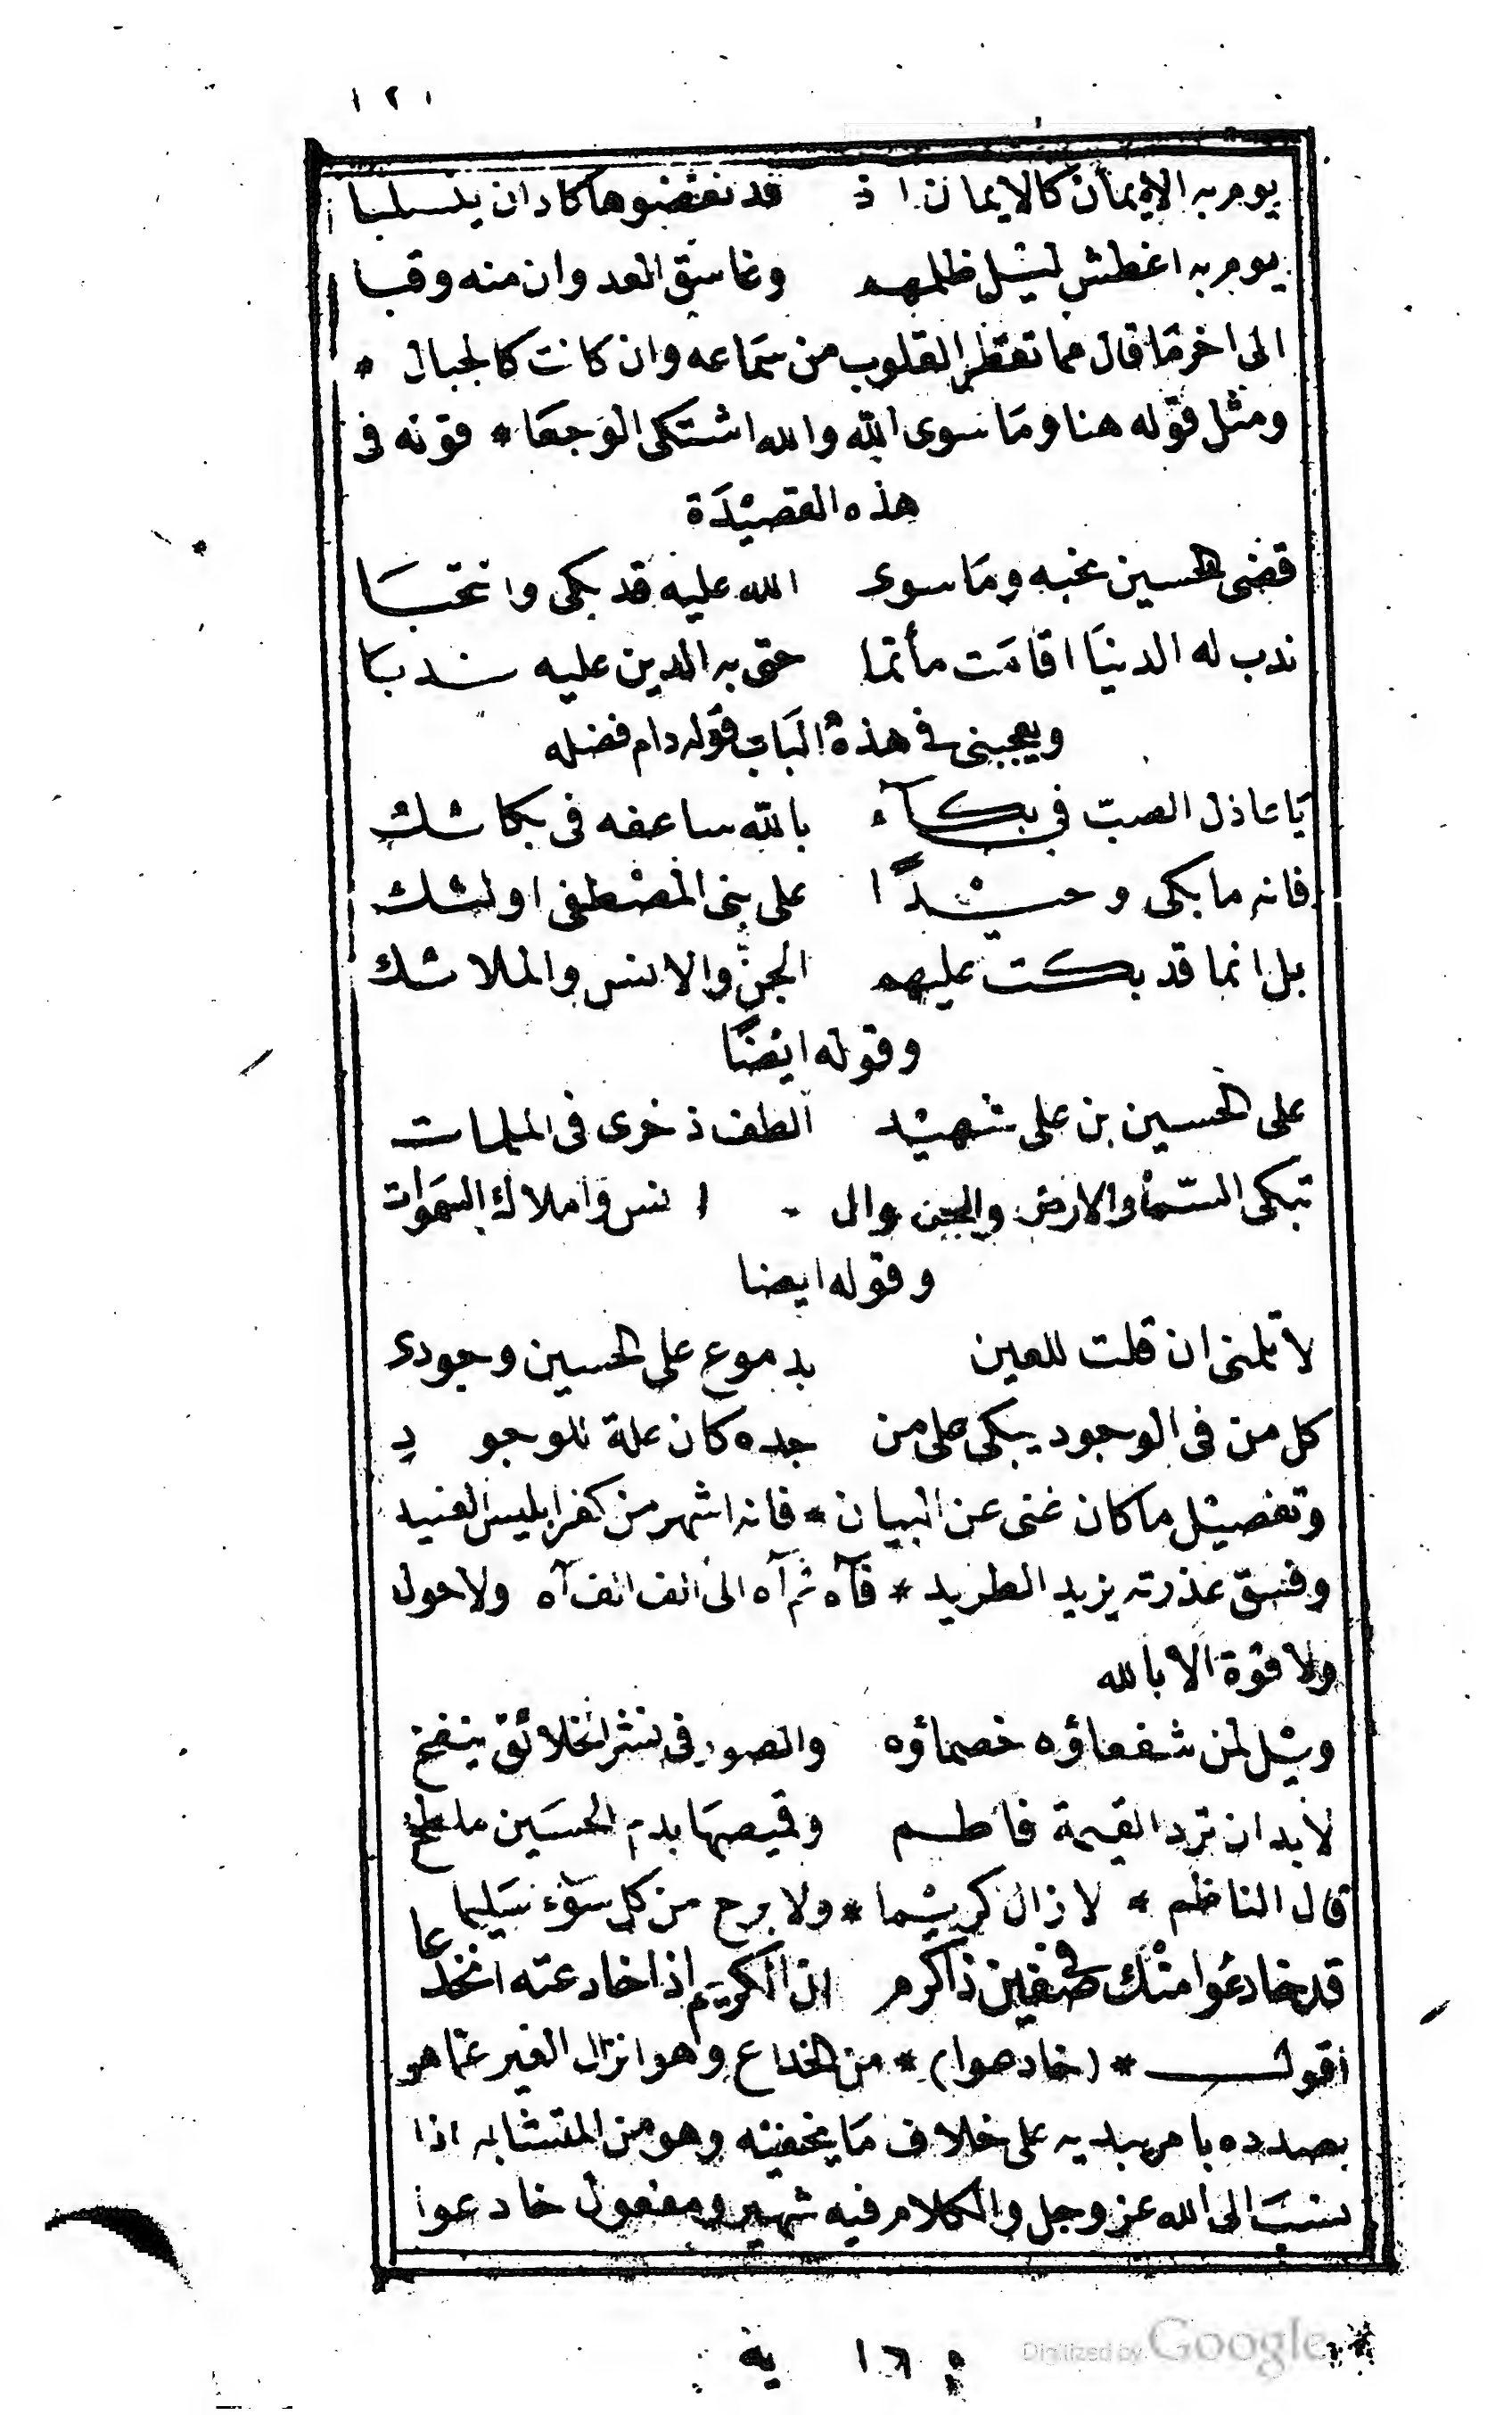 ١٢١
يوم به الايمان كالايمان اذ قد نقضوها كاد ان ينسلبا
يوم به اغطش ليل ظلمهم وغاسق العدوان منه وقبا
الى اخر ما قال مما تفطر القلوب من سماعه وان كانت كالجبال *
ومثل قوله هنا وما سوى الله والله اشتكى الوجعا * قوله فى
هذه القصيدة
قضى الحسين نحبه وما سوى الله عليه قد بكى وانتحبا
ندب له الدنيا اقامت مأتما حتى به الدين عليه ندبا
ويعجبنى فى هذه الباب قوله دام فضله
يا عاذل الصب فى بكآء بالله ساعفه فى بكائك
فانه ما بكى وحيدًا على بنى المصطفى اولئك
بل انما قد بكت عليهم الجن والانس والملائك
وقوله ايضًا
على الحسين بن على شهيد الطف ذخرى فى الملمات
تبكى السمأ والارض والجن وال - انس واملاك السموات
وقوله ايضا
لا تلمنى ان قلت للعين بدموع على الحسين وجودى
كل من فى الوجود يبكى على من جده كان علة للوجود
وتفصيل ما كان غنى عن البيان * فانه اشهر من كفر ابليس العنيد
وفسق عذرته يزيد الطريد * فآه ثم آه الى الف الف آه ولا حول
ولا قوة الا بالله
ويل لمن شفعاؤه خصماؤه والصور فى نشر الخلائق ينفخ
لا بد ان ترد القيمة فاطم وقميصها بدم الحسين ملطخ
قال الناظم * لا زال كريما * ولا برح من كل سوء سليما
قد خادعوا منك فى صفين ذا كرم ان الكريم اذا خادعته انخدعا
اقول * (خادعوا) * من الخداع وهو انزال الغير عما هو
بصدده بامر يبديه على خلاف ما يخفيه وهو من المتشابه اذا
نسب الى الله عز وجل والكلام فيه شهير ومفعول خادعوا
١٦ يه
Digitized by Google